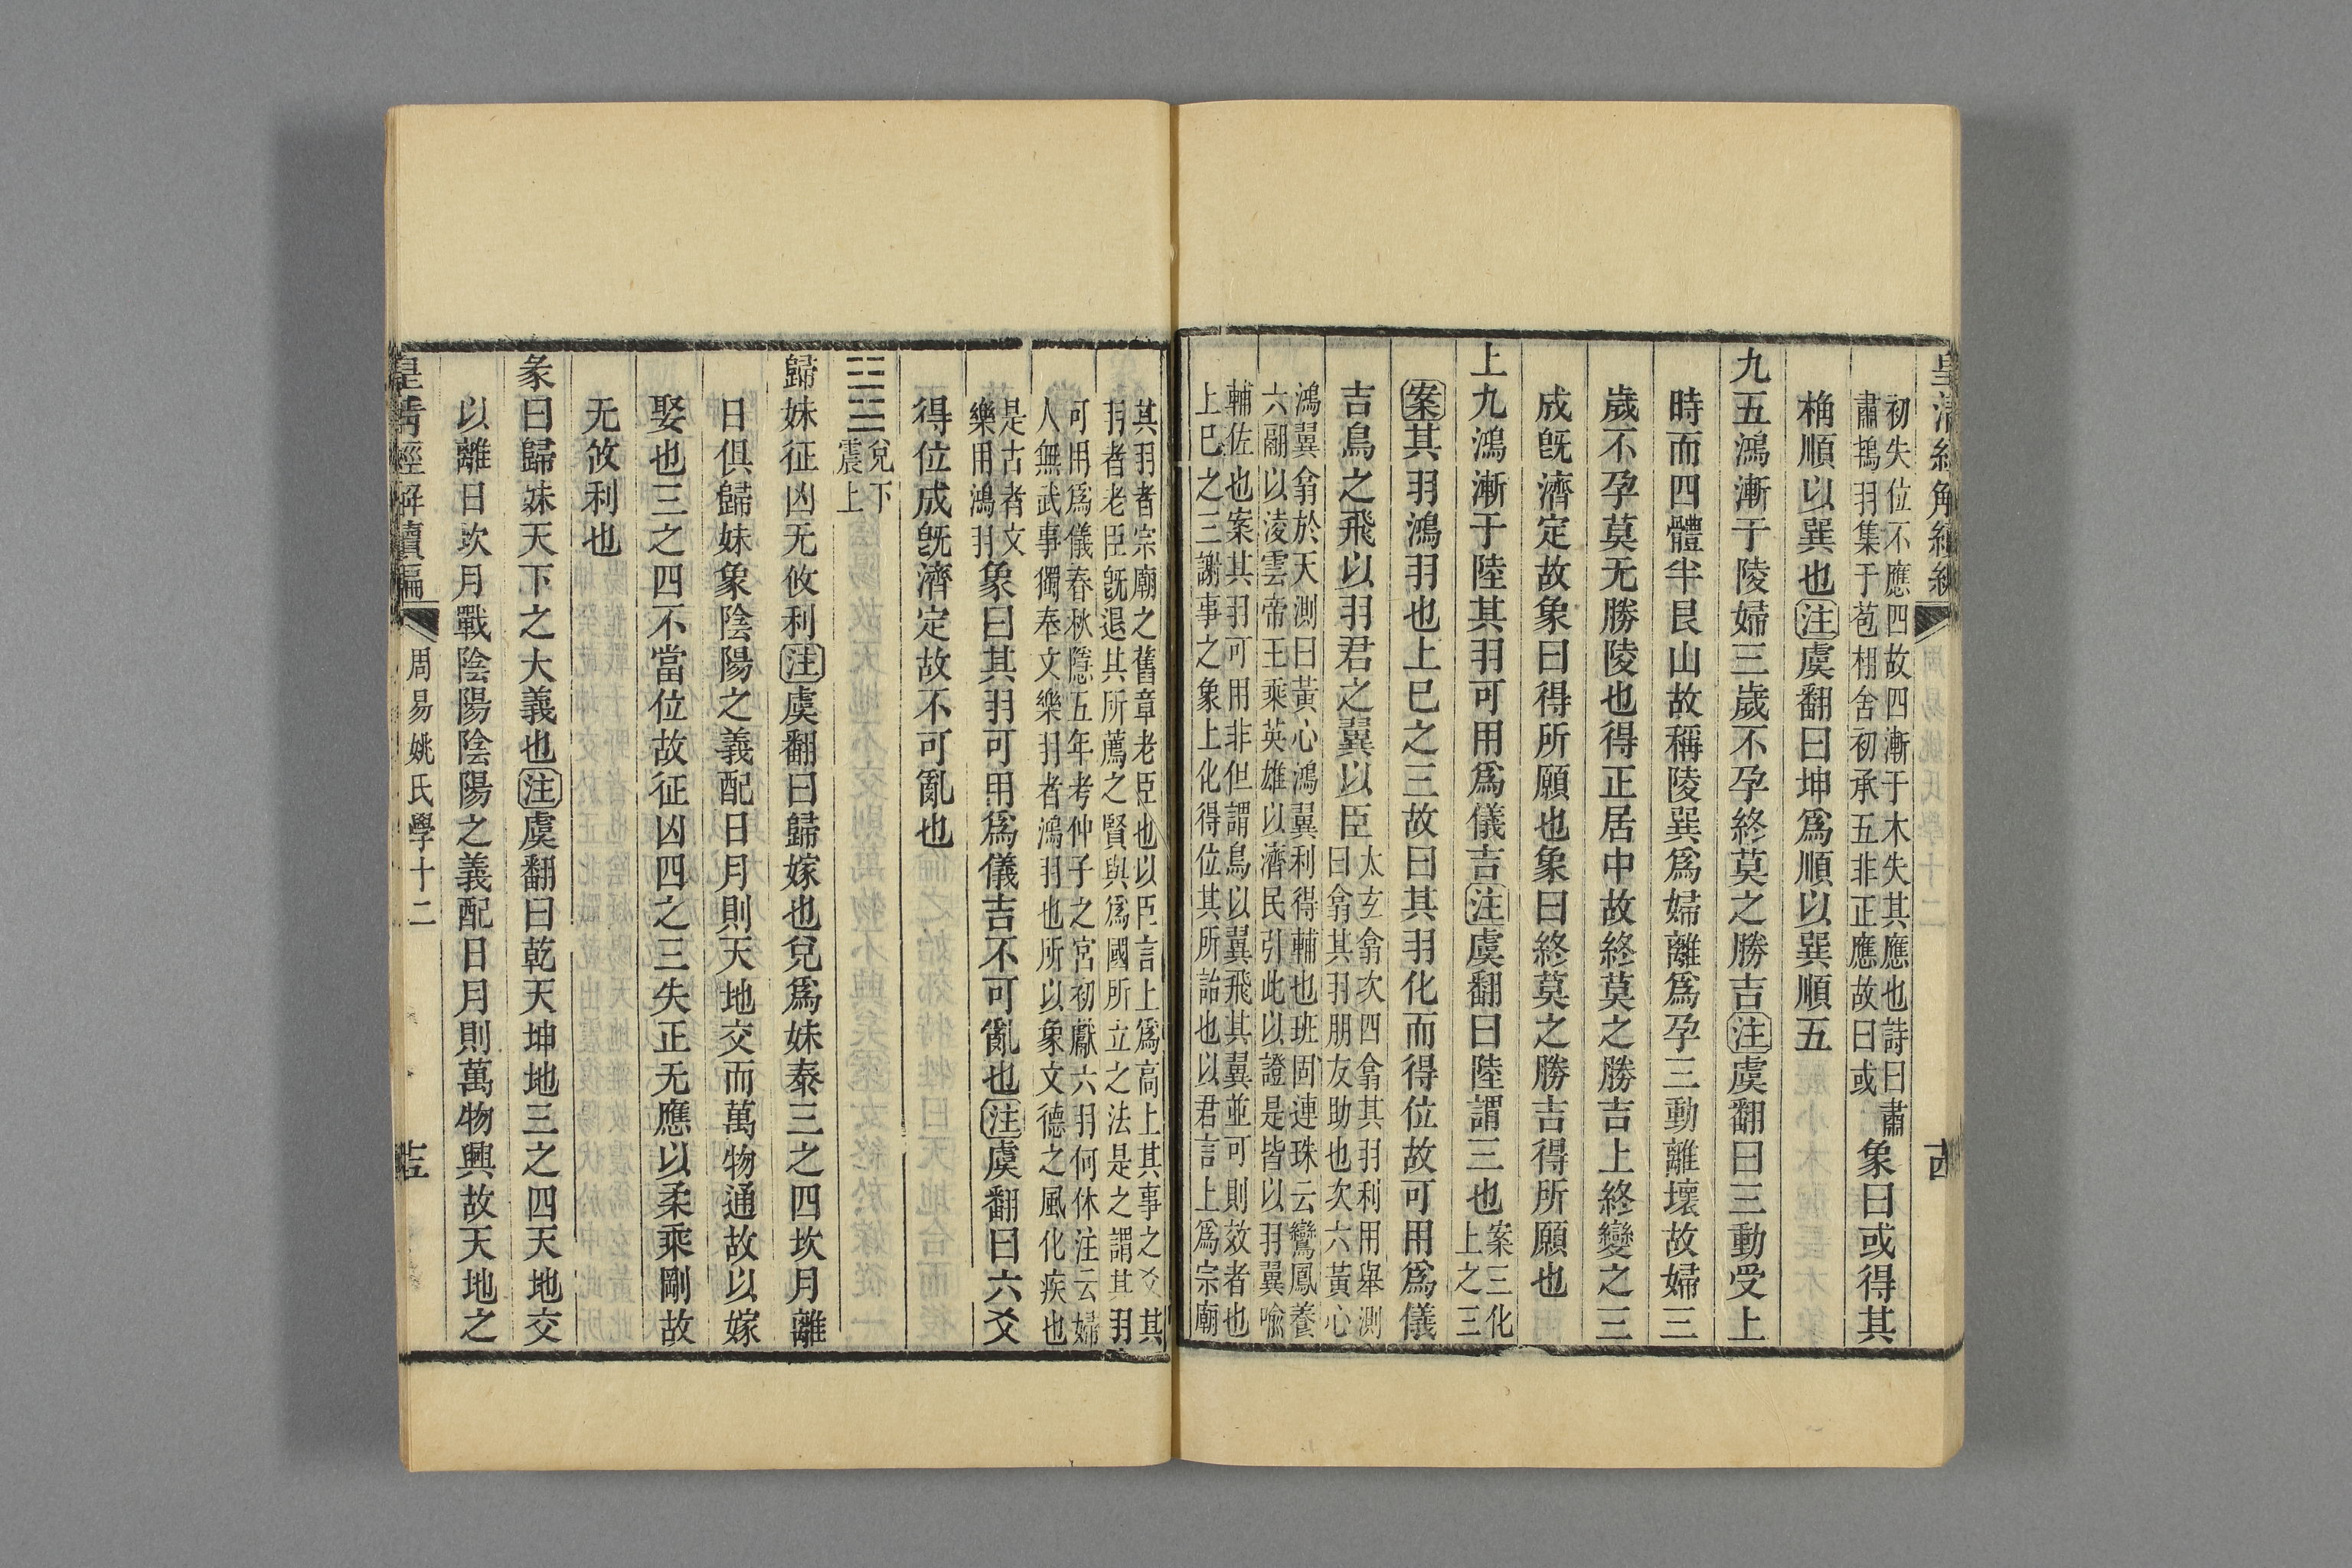 皇清經解續編
初失位不應四故四漸于木失其應也詩曰肅
肅鴇羽集于苞栩舍初承五非正應故曰或
象曰或得其
桷順以巽也注虞翻曰坤爲順以巽順五
九五鴻漸于陵婦三歲不孕終莫之勝吉注虞翻曰三動受上
時而四體半艮山故稱陵巽爲婦離爲孕三動離壞故婦三
歲不孕莫无勝陵也得正居中故終莫之勝吉上終變之三
成旣濟定故象曰得所願也象曰終莫之勝吉得所願也
上九鴻漸于陸其羽可用爲儀吉注虞翻曰陸謂三也
案三化
上之三
案其羽鴻羽也上巳之三故曰其羽化而得位故可用爲儀
吉鳥之飛以羽君之翼以臣
太玄翕次四翕其羽利用舉測
曰翕其羽朋友助也次六黃心
鴻翼翕於天測曰黃心鴻翼利得輔也班固連珠云鸞鳳養
六翮以淩雲帝王乘英雄以濟民引此以證是皆以羽翼喻
輔佐也案其羽可用非但謂鳥以翼飛其翼並可則效者也
上巳之三謝事之象上化得位其所詒也以君言上爲宗廟
其羽者宗廟之舊章老臣也以臣言上爲高上其事之爻其
羽者老臣旣退其所薦之賢與爲國所立之法是之謂其羽
可用爲儀春秋隱五年考仲子之宮初獻六羽何休注云婦
人無武事獨奉文樂羽者鴻羽也所以象文德之風化疾也
是古者文
樂用鴻羽
象曰其羽可用爲儀吉不可亂也注虞翻曰六爻
得位成旣濟定故不可亂也
兌下
震上
歸妹征凶无攸利注虞翻曰歸嫁也兌爲妹泰三之四坎月離
日俱歸妹象陰陽之義配日月則天地交而萬物通故以嫁
娶也三之四不當位故征凶四之三失正无應以柔乘剛故
无攸利也
彖曰歸妹天下之大義也注虞翻曰乾天坤地三之四天地交
以離日坎月戰陰陽陰陽之義配日月則萬物興故天地之
皇清經解續編
周易姚氏學十二